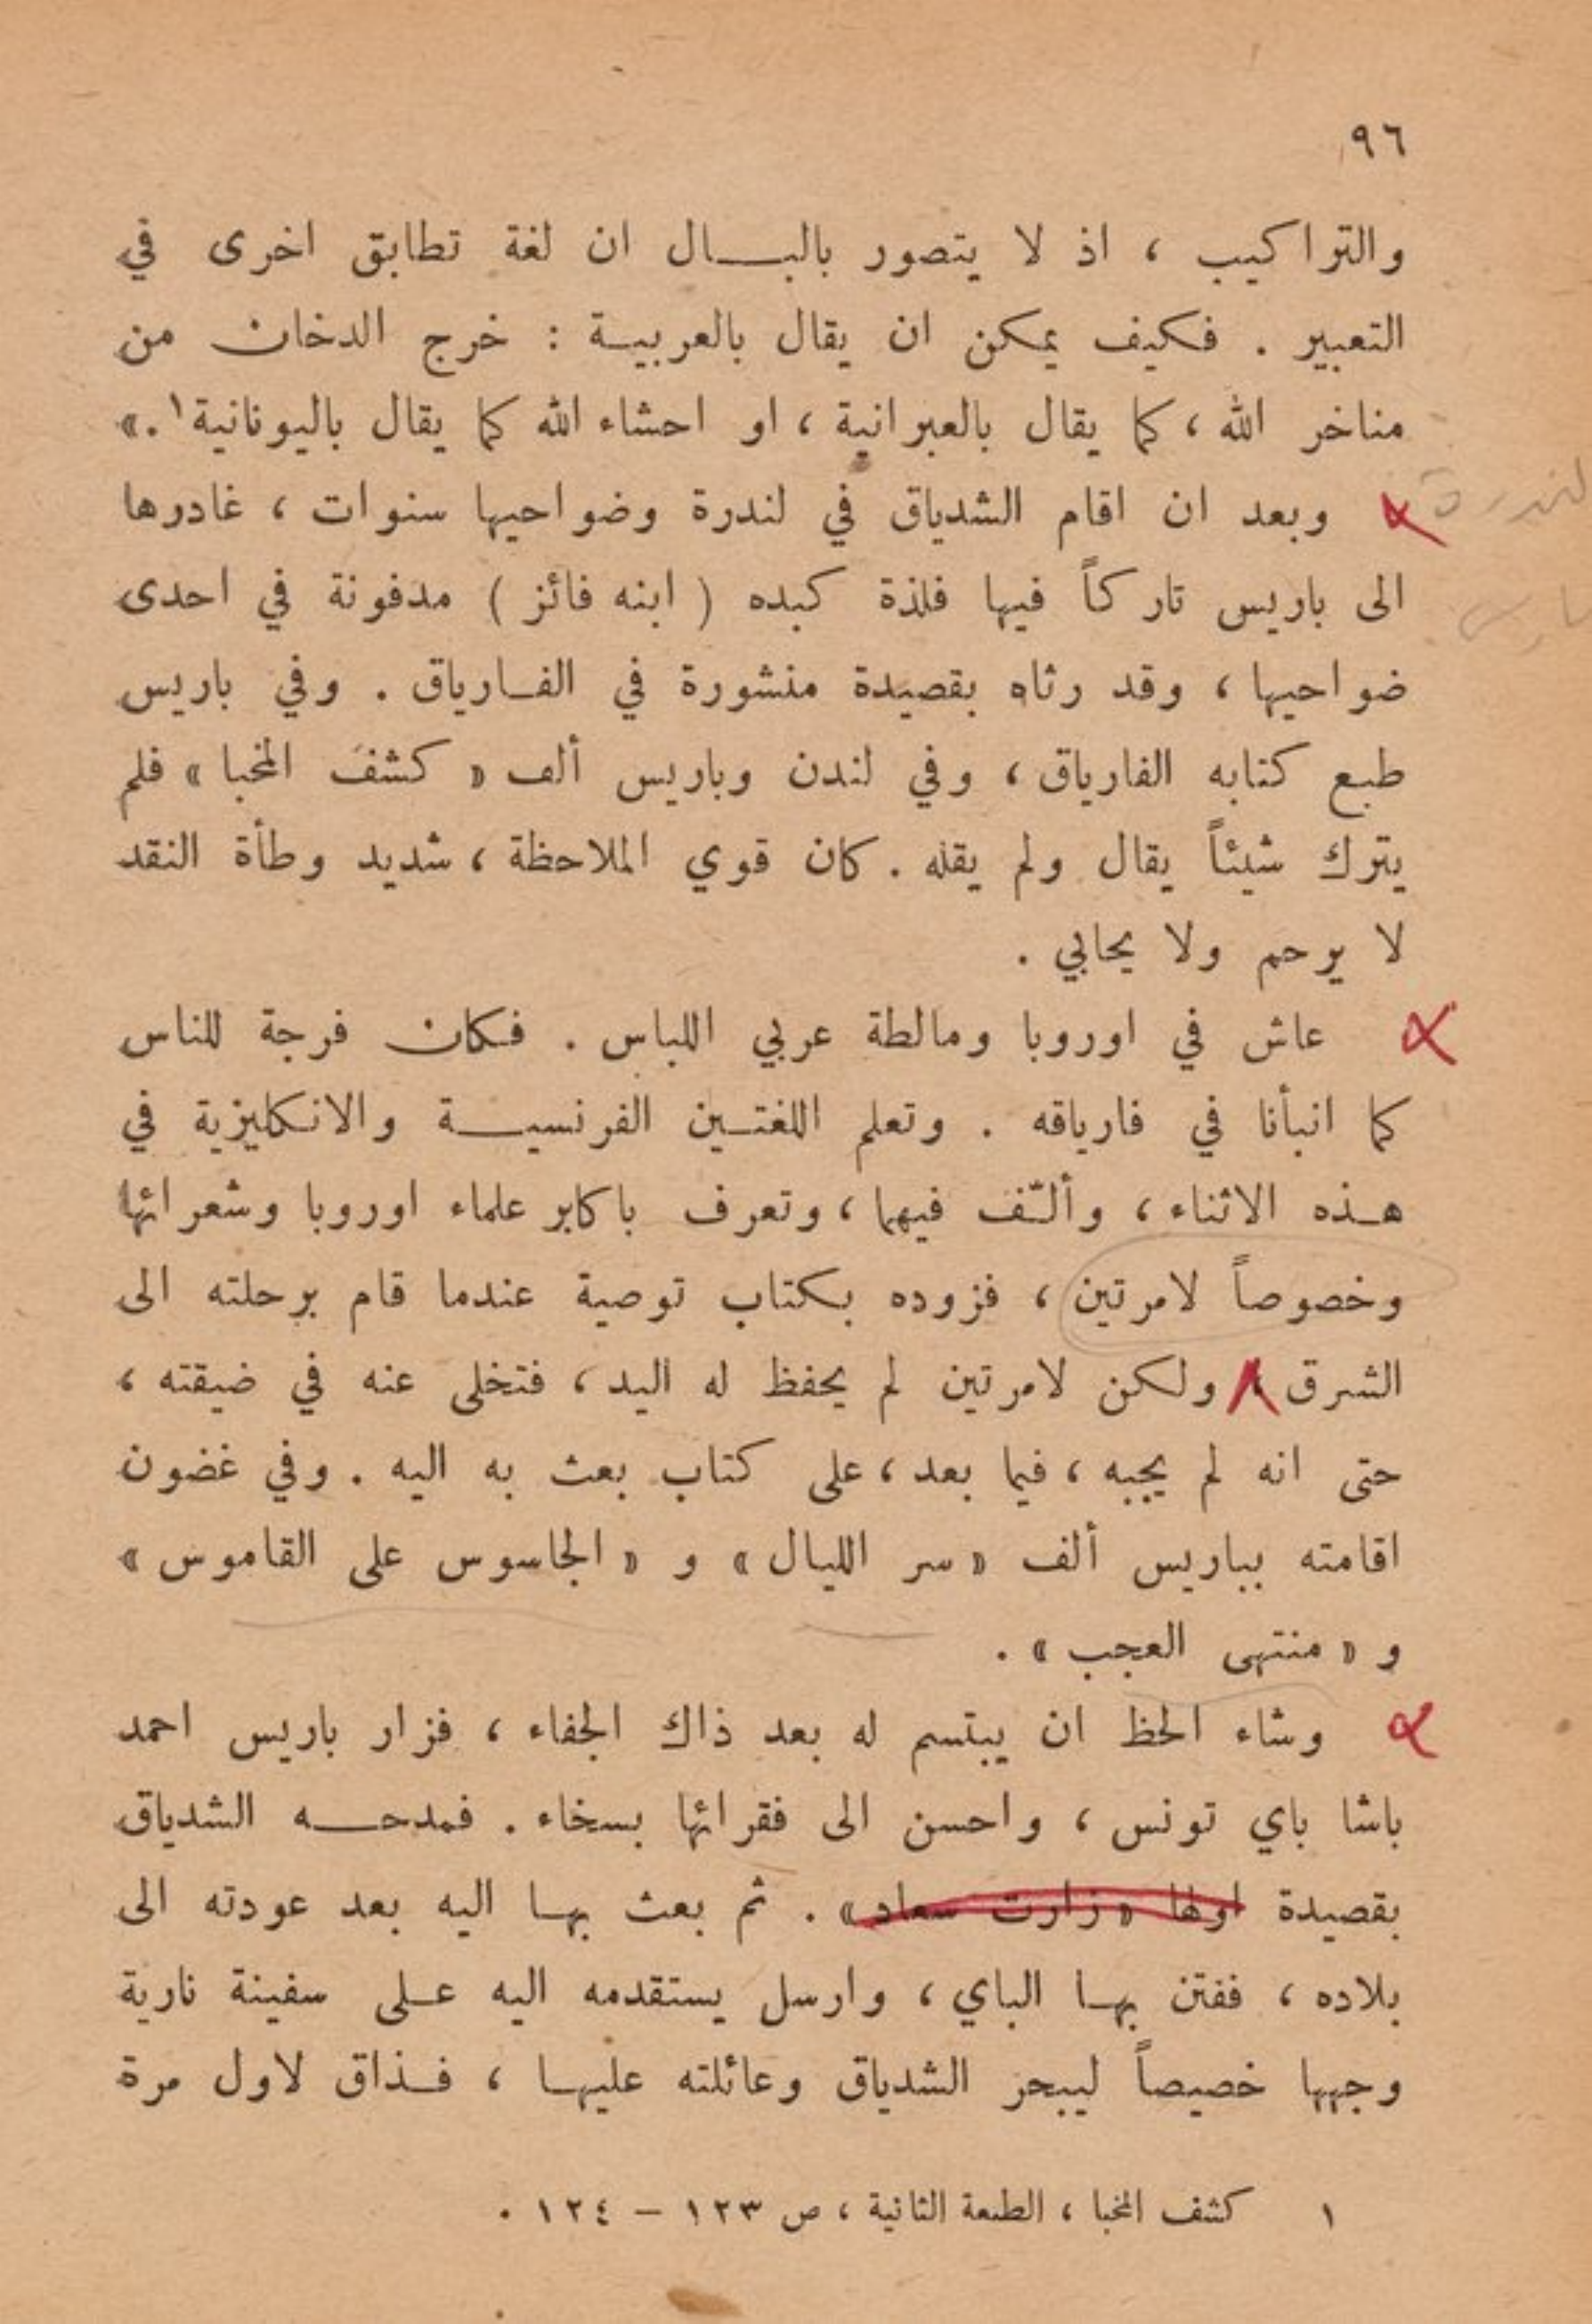 ٩٦
والتراكيب ، اذ لا يتصور بالبـــال ان لغة تطابق اخرى في
التعبير . فكيف يمكن ان يقال بالعربيـة : خرج الدخان من
مناخر الله ، كما يقال بالعبرانية ، او احشاء الله كما يقال باليونانية١ .»
لندرة
وبعد ان اقام الشدياق في لندرة وضواحيها سنوات ، غادرها
باريس
الى باريس تاركاً فيها فلذة كبده ( ابنه فائز ) مدفونة في احدى
ضواحيها ، وقد رثاه بقصيدة منشورة في الفـارياق . وفي باريس
طبع كتابه الفارياق ، وفي لندن وباريس ألف « كشف المخبا » فلم
يترك شيئاً يقال ولم يقله . كان قوي الملاحظة ، شديد وطأة النقد
لا يرحم ولا يحابي .
عاش في اوروبا ومالطة عربي اللباس . فكان فرجة للناس
كما انبأنا في فارياقه . وتعلم اللغتـين الفرنسيــة والانكليزية في
هـذه الاثناء ، وألّف فيهما ، وتعرف باكابر علماء اوروبا وشعرائها
وخصوصاً لامرتين ، فزوده بكتاب توصية عندما قام برحلته الى
الشرق ولكن لامرتين لم يحفظ له اليد ، فتخلى عنه في ضيقته ،
حتى انه لم يجبه ، فيما بعد ، على كتاب بعث به اليه . وفي غضون
اقامته بباريس ألف « سر الليال » و « الجاسوس على القاموس »
و « منتهى العجب » .
وشاء الحظ ان يبتسم له بعد ذاك الجفاء ، فزار باريس احمد
باشا باي تونس ، واحسن الى فقرائها بسخاء . فمدحـــه الشدياق
بقصيدة اولها « زارت سعاد » . ثم بعث بهـا اليه بعد عودته الى
بلاده ، ففتن بهـا الباي ، وارسل يستقدمه اليه عـلى سفينة نارية
وجهها خصيصاً ليبحر الشدياق وعائلته عليهـا ، فـذاق لاول مرة
١ كشف المخبا ، الطبعة الثانية ، ص ١٢٣ – ١٢٤ .